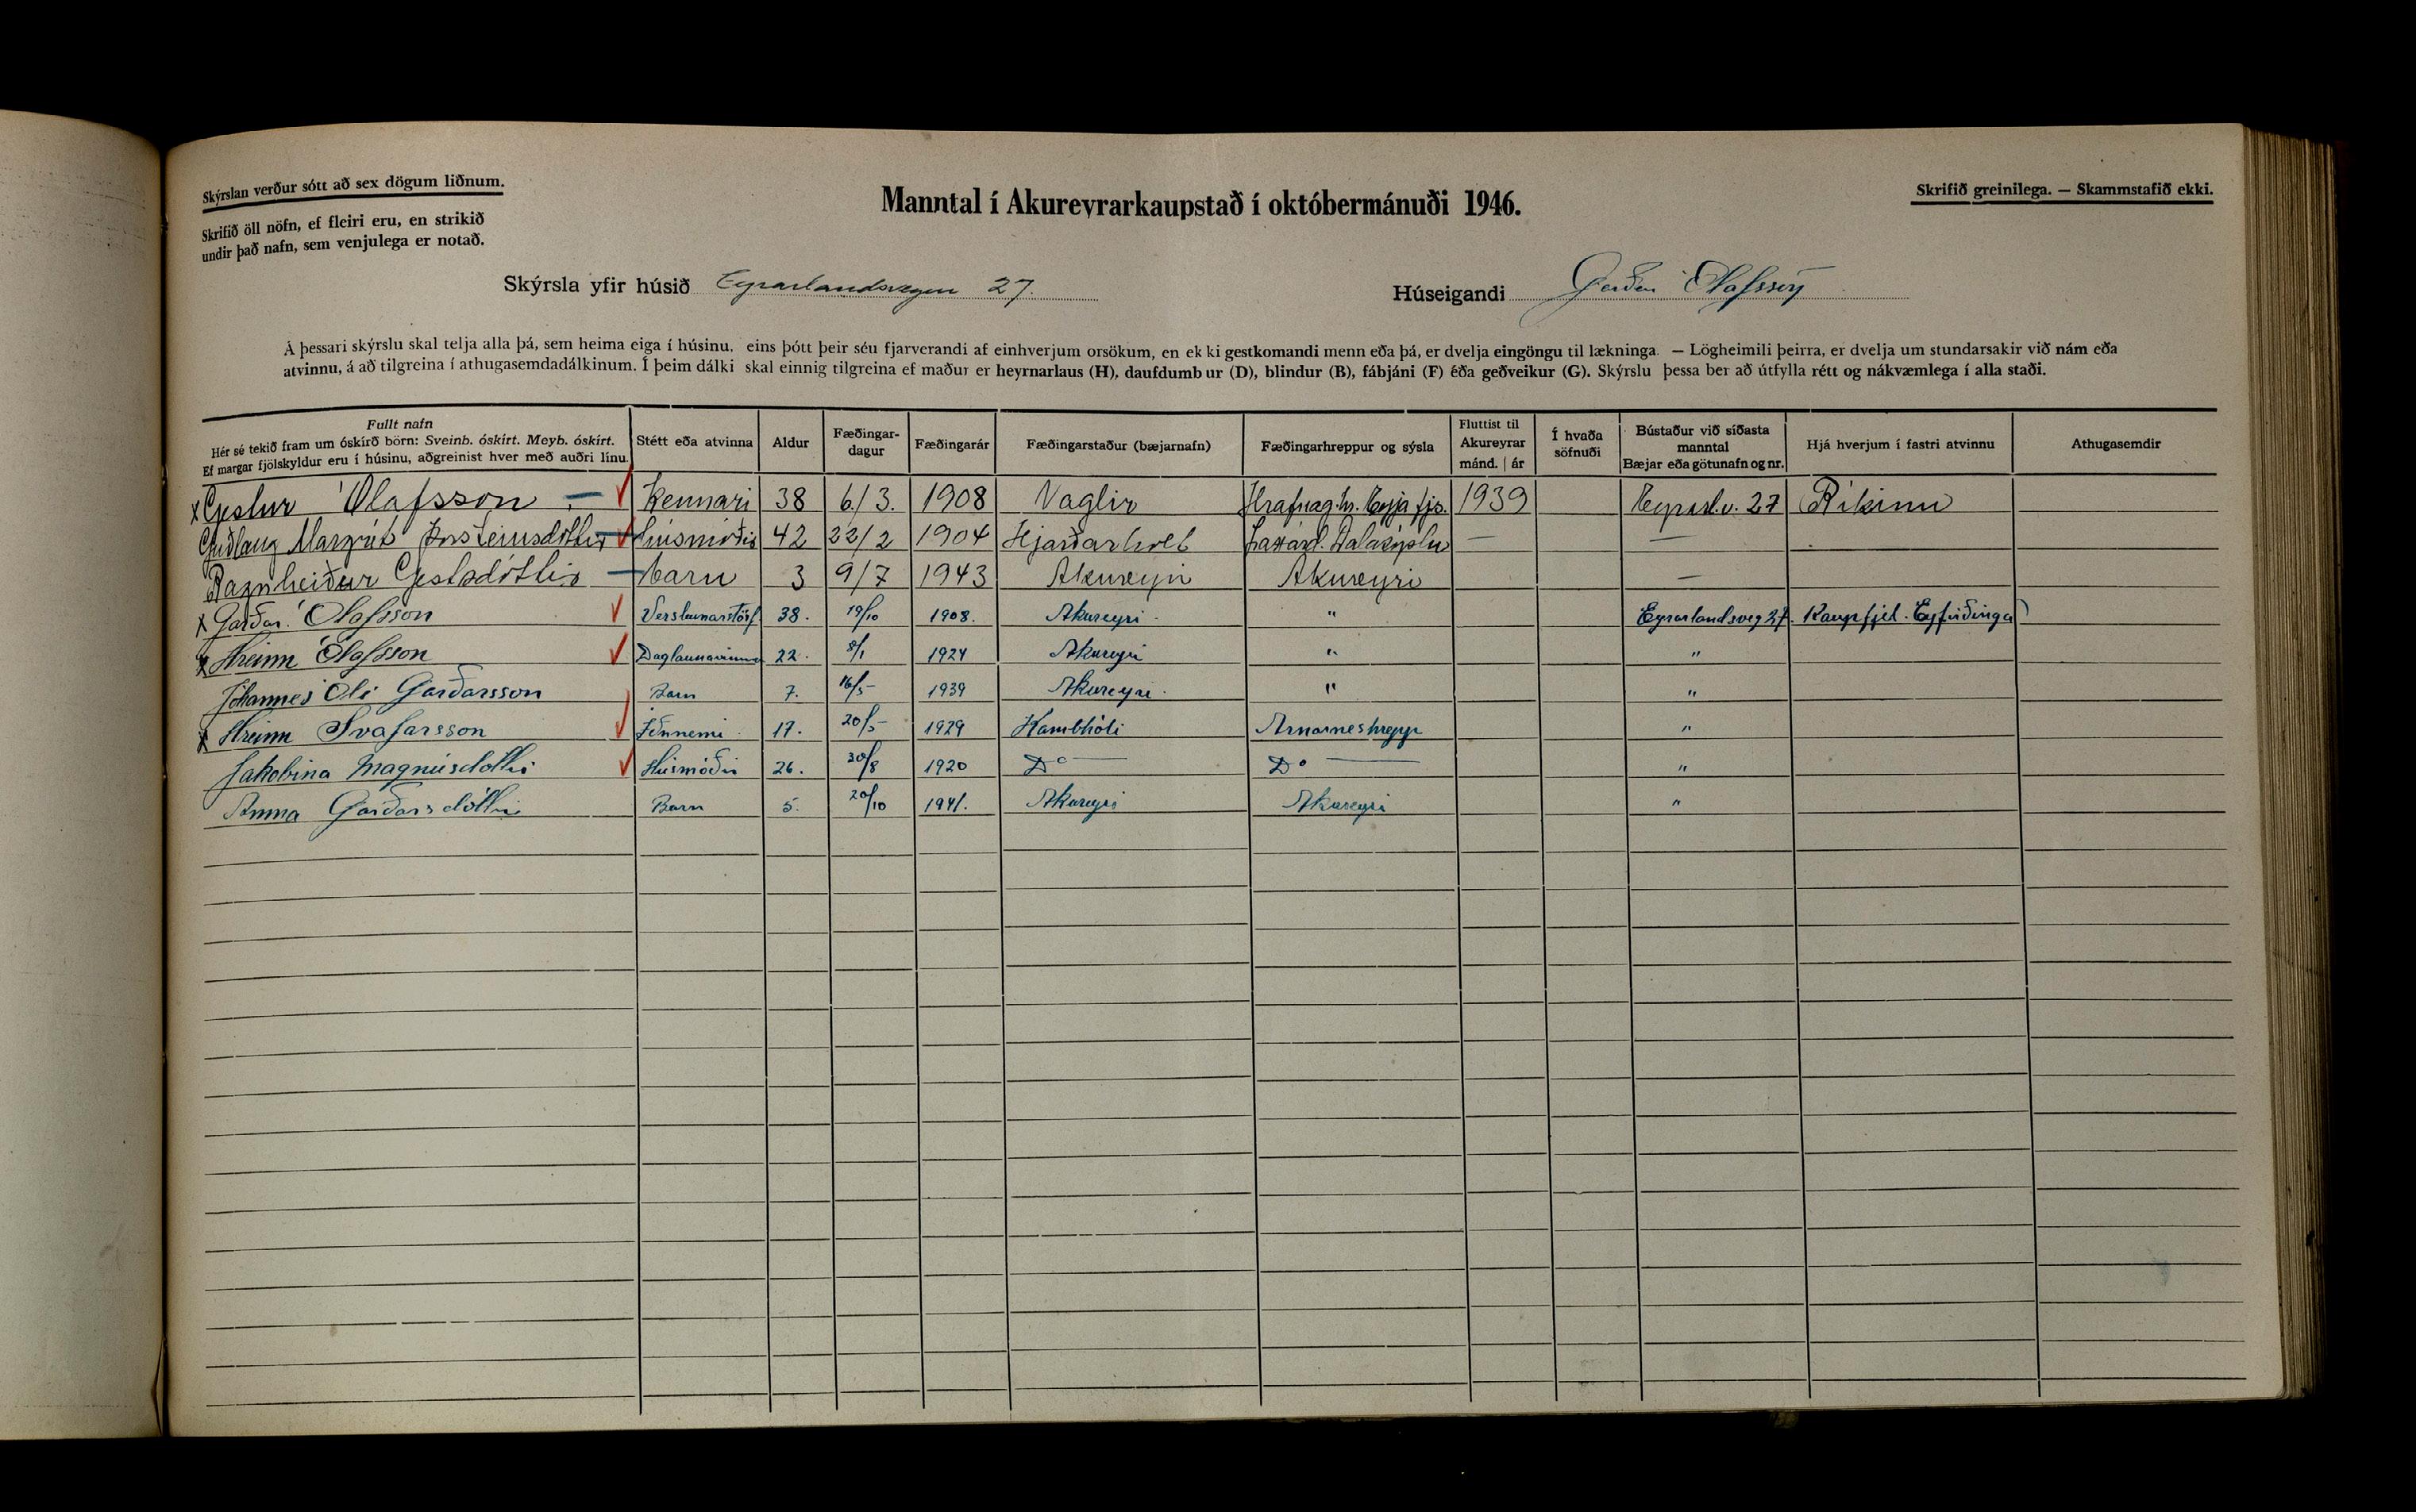 Skýrslan verður sótt að sex dögum liðnum.
Skrifið öll nöfn, ef fleiri eru, en strikið
undir það nafn, sem venjulega er notað.
Manntal í Akureyrarkaupstað í októbermánuði 1946.
Skrifið greinilega. — Skammstafið ekki.
Skýrsla yfir húsið Eyrarlandsvegur 27.
Húseigandi Garðar Ólafsson
Á þessari skýrslu skal telja alla þá, sem heima eiga í húsinu, eins þótt þeir séu fjarverandi af einhverjum orsökum, en ekki gestkomandi menn eða þá, er dvelja eingöngu til lækninga. — Lögheimili þeirra, er dvelja um stundarsakir við nám eða
atvinnu, á að tilgreina í athugasemdadálkinum. Í þeim dálki skal einnig tilgreina ef maður er heyrnarlaus (H), daufdumbur (D), blindur (B), fábjáni (F) éða geðveikur (G). Skýrslu þessa ber að útfylla rétt og nákvæmlega í alla staði.
Fullt nafn
Hér sé tekið fram um óskírð börn: Sveinb. óskírt. Meyb. óskírt.
Ef margar fjölskyldur eru í húsinu, aðgreinist hver með auðri línu.
Stétt eða atvinna
Aldur
Fæðingar-
dagur
Fæðingarár
Fæðingarstaður (bæjarnafn)
Fæðingarhreppur og sýsla
Fluttist til
Akureyrar
mánd. | ár
Í hvaða
söfnuði
Bústaður við síðasta
manntal
Bæjar eða götunafn og nr.
Hjá hverjum í fastri atvinnu
Athugasemdir
x Gestur Ólafsson — Kennari 38 6/3. 1908 Vaglir Hrafnag.hr. Eyjafjs. 1939 Eyrarl.v. 27 Ríkinu
Guðlaug Margrét Þorsteinsdóttir Húsmóðir 42 22/2 1904 Hjarðarholt Laxárd. Dalasýslu — —
Ragnheiður Gestsdóttir — barn 3 9/7 1943 Akureyri Akureyri —
x Garðar Ólafsson Verslunarstörf 38. 19/10 1908. Akureyri " Eyrarlandsveg 27. Kaupfjel. Eyfirðinga
x Hreinn Ólafsson Daglaunavinna 22. 8/1 1924 Akureyri " "
Jóhannes Óli Garðarsson Barn 7. 16/5 1939 Akureyri " "
x Hreinn Svafarsson Iðnnemi 17. 20/5 1929 Kambhóli Arnarneshrepp "
Jakobína Magnúsdóttir Húsmóðir 26. 30/8 1920 Do Do "
Anna Garðarsdóttir Barn 5. 20/10 1941. Akureyri Akureyri "